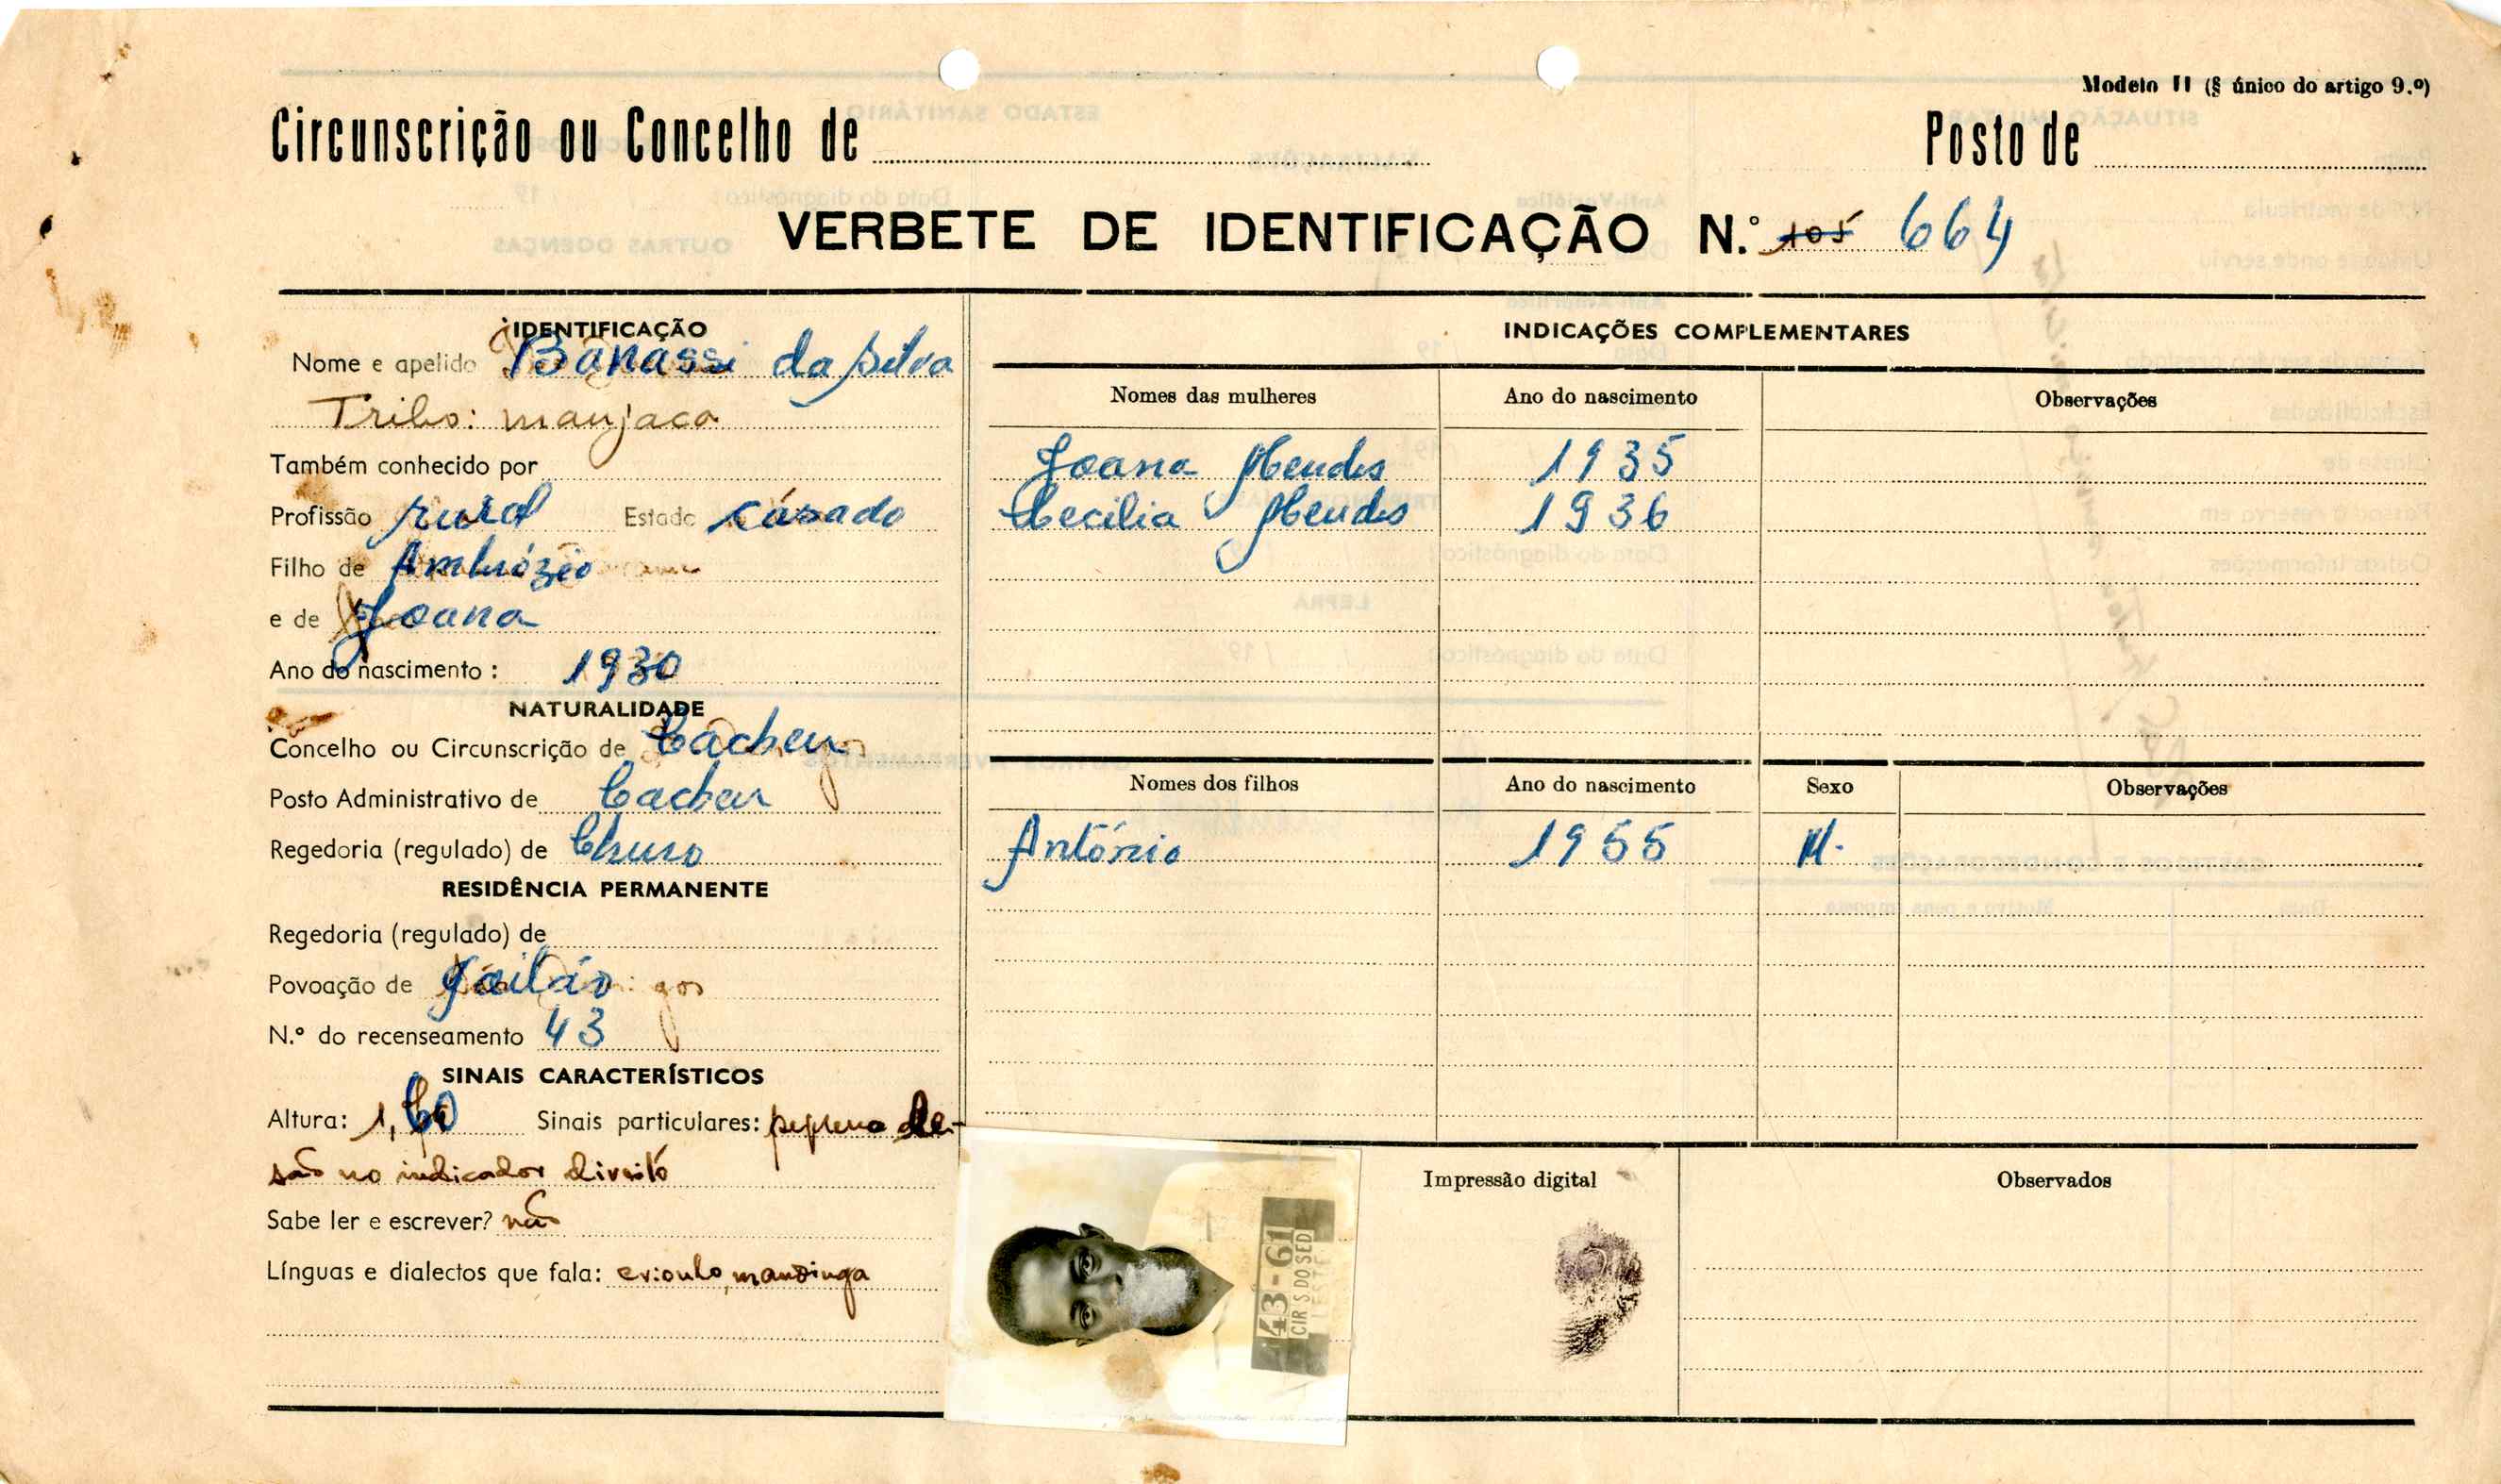 Modelo II (§ único do artigo 9.º)
Circunscrição ou Concelho de
Posto de
VERBETE DE IDENTIFICAÇÃO N.º 105 664
IDENTIFICAÇÃO
Nome e apelido Banassi da Silva
Tribo: manjaca
Também conhecido por
Profissão rural Estado cásado
Filho de Ambrózio
e de Joana
Ano do nascimento: 1930
NATURALIDADE
Concelho ou Circunscrição de Cacheu
Posto Administrativo de Cacheu
Regedoria (regulado) de Churo
RESIDÊNCIA PERMANENTE
Regedoria (regulado) de
Povoação de
N.º do recenseamento 43
SINAIS CARACTERÍSTICOS
Altura: 1,60 Sinais particulares: pequena le-
são no indicador direito
Sabe ler e escrever? não
Línguas e dialectos que fala: crioulo, mandinga
INDICAÇÕES COMPLEMENTARES
Nomes das mulheres Ano do nascimento Observações
Joana Mendes 1935
Cecilia Mendes 1936
Nomes dos filhos Ano do nascimento Sexo Observações
António 1955 M.
43-61
CIR S DO SEDI
LESTE
Impressão digital
Observados